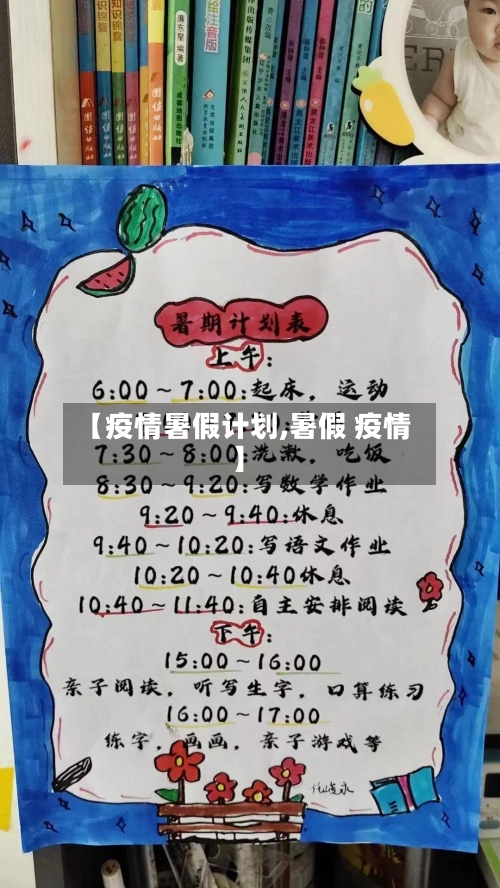 知识锦囊
知识锦囊
廉东星 编著
绘注音版
出版传媒集团
暑期计划表
上午:
6:00～7:00:起床，运动
【疫情暑假计划,暑假 疫情
】
7:30～8:00:洗漱，吃饭
8:30～9:20:写数学作业
9:20～9:40:休息
9:40～10:20:写语文作业
10:20～10:40休息
10:40～11:40:自主安排阅读
下午:
15:00～16:00
亲子阅读，听写生字，口算练习
16:00～17:00
练字，画画，亲子游戏等